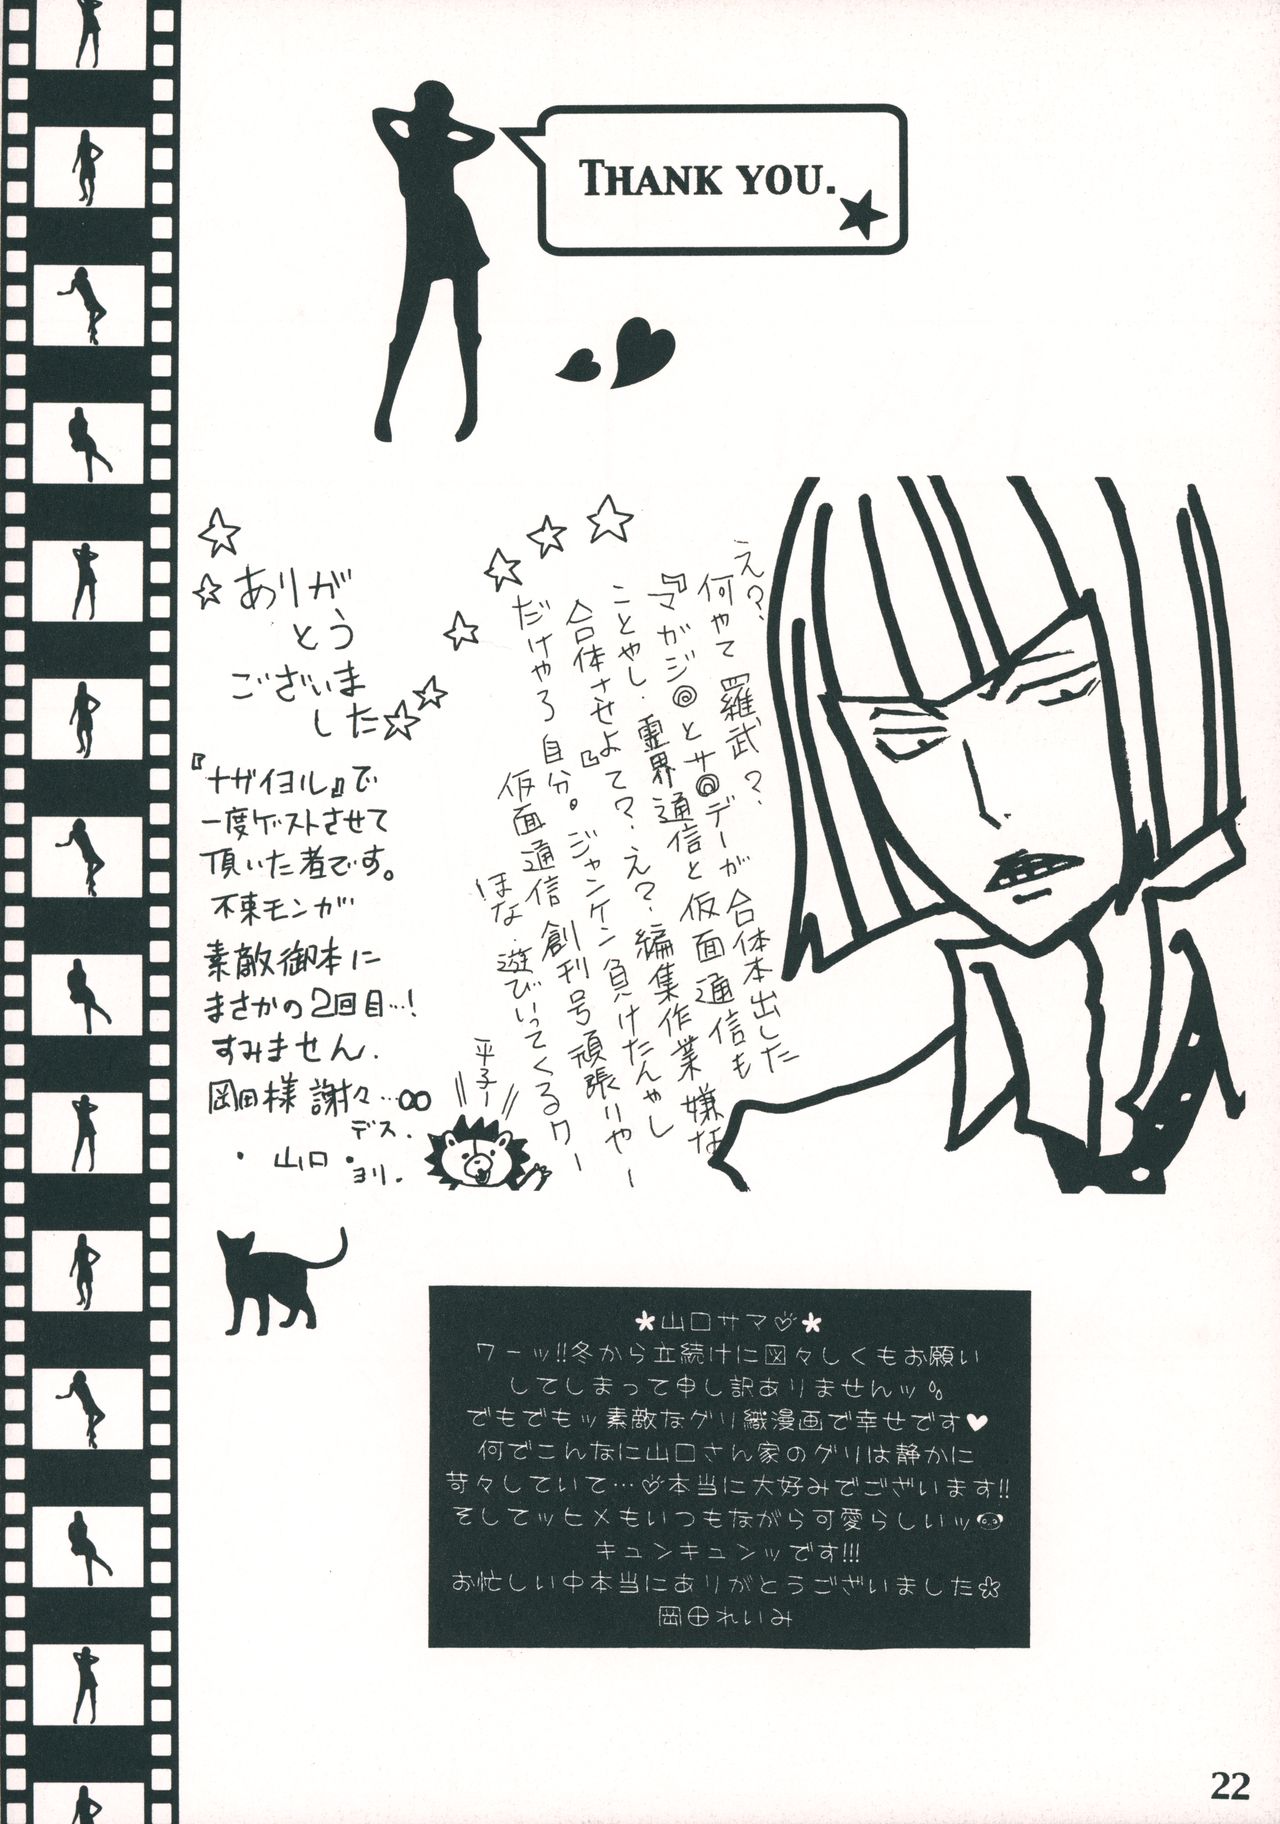 THANK YOU.
え？、
何やて羅武？、
『マガジ◎とサ◎デーが合体本出した
ことやし、霊界通信と仮面通信も
合体させよて？、え？、編集作業嫌な
だけやろ自分。ジャンケン負けたんやし
仮面通信創刊号頑張りやー
ほな、遊びいってくるワー
平子ー
ありが
とう
ございま
した
『ナガイヨル』で
一度ゲストさせて
頂いた者です。
不束モンが
素敵御本に
まさかの2回目…!
すみません.
岡田様 謝々…∞
デス.
・山口・
ヨリ.
*山口サマ♡*
ワーッ!!冬から立続けに図々しくもお願い
してしまって申し訳ありませんッ
でもでもッ素敵なグリ織漫画で幸せです♥
何でこんなに山口さん家のグリは静かに
苛々していて…♡本当に大好みでございます!!
そしてッヒメもいつもながら可愛らしいッ
キュンキュンッです!!!
お忙しい中本当にありがとうございました
岡田れいみ
22